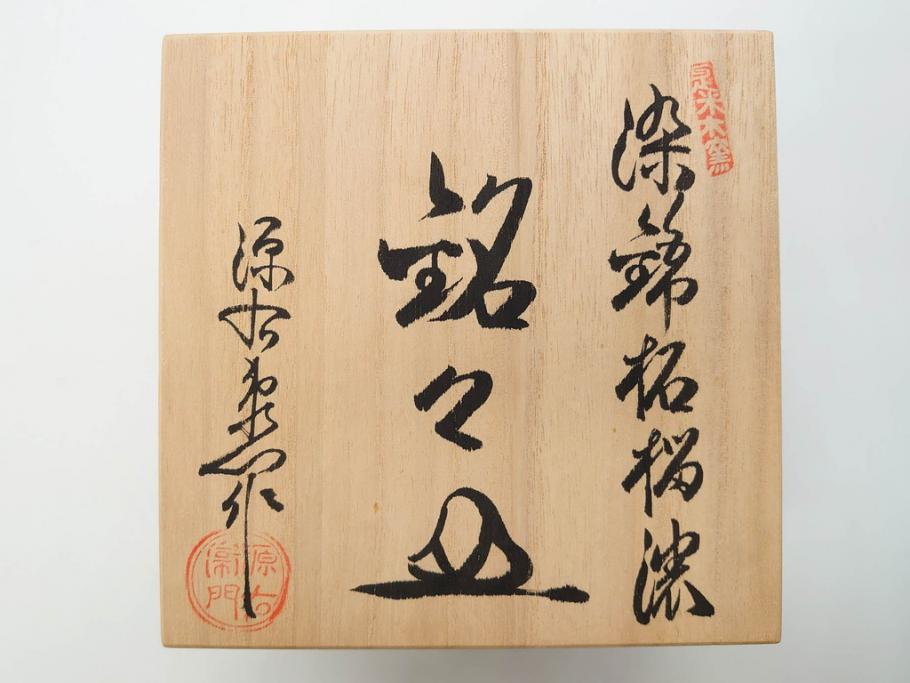 是米木窯
染錦柘榴濃
銘々皿
源右衛門作
源右衛門